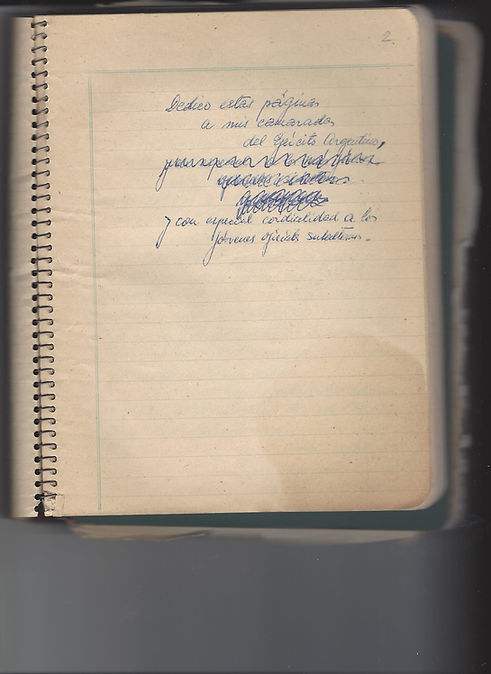 2.
Dedico estas páginas
a mis camaradas
del Ejército Argentino,
y con especial cordialidad a los
jóvenes oficiales subalternos.-